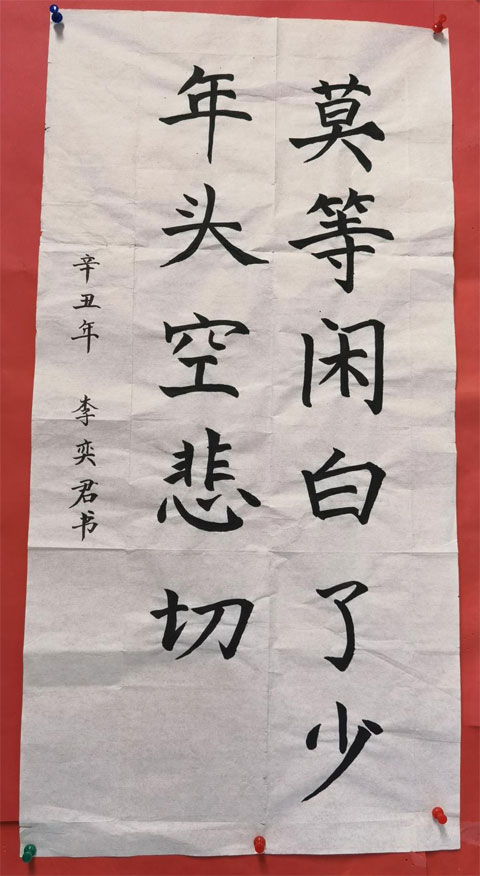 莫等闲白了少
年头空悲切
辛丑年 李奕君书